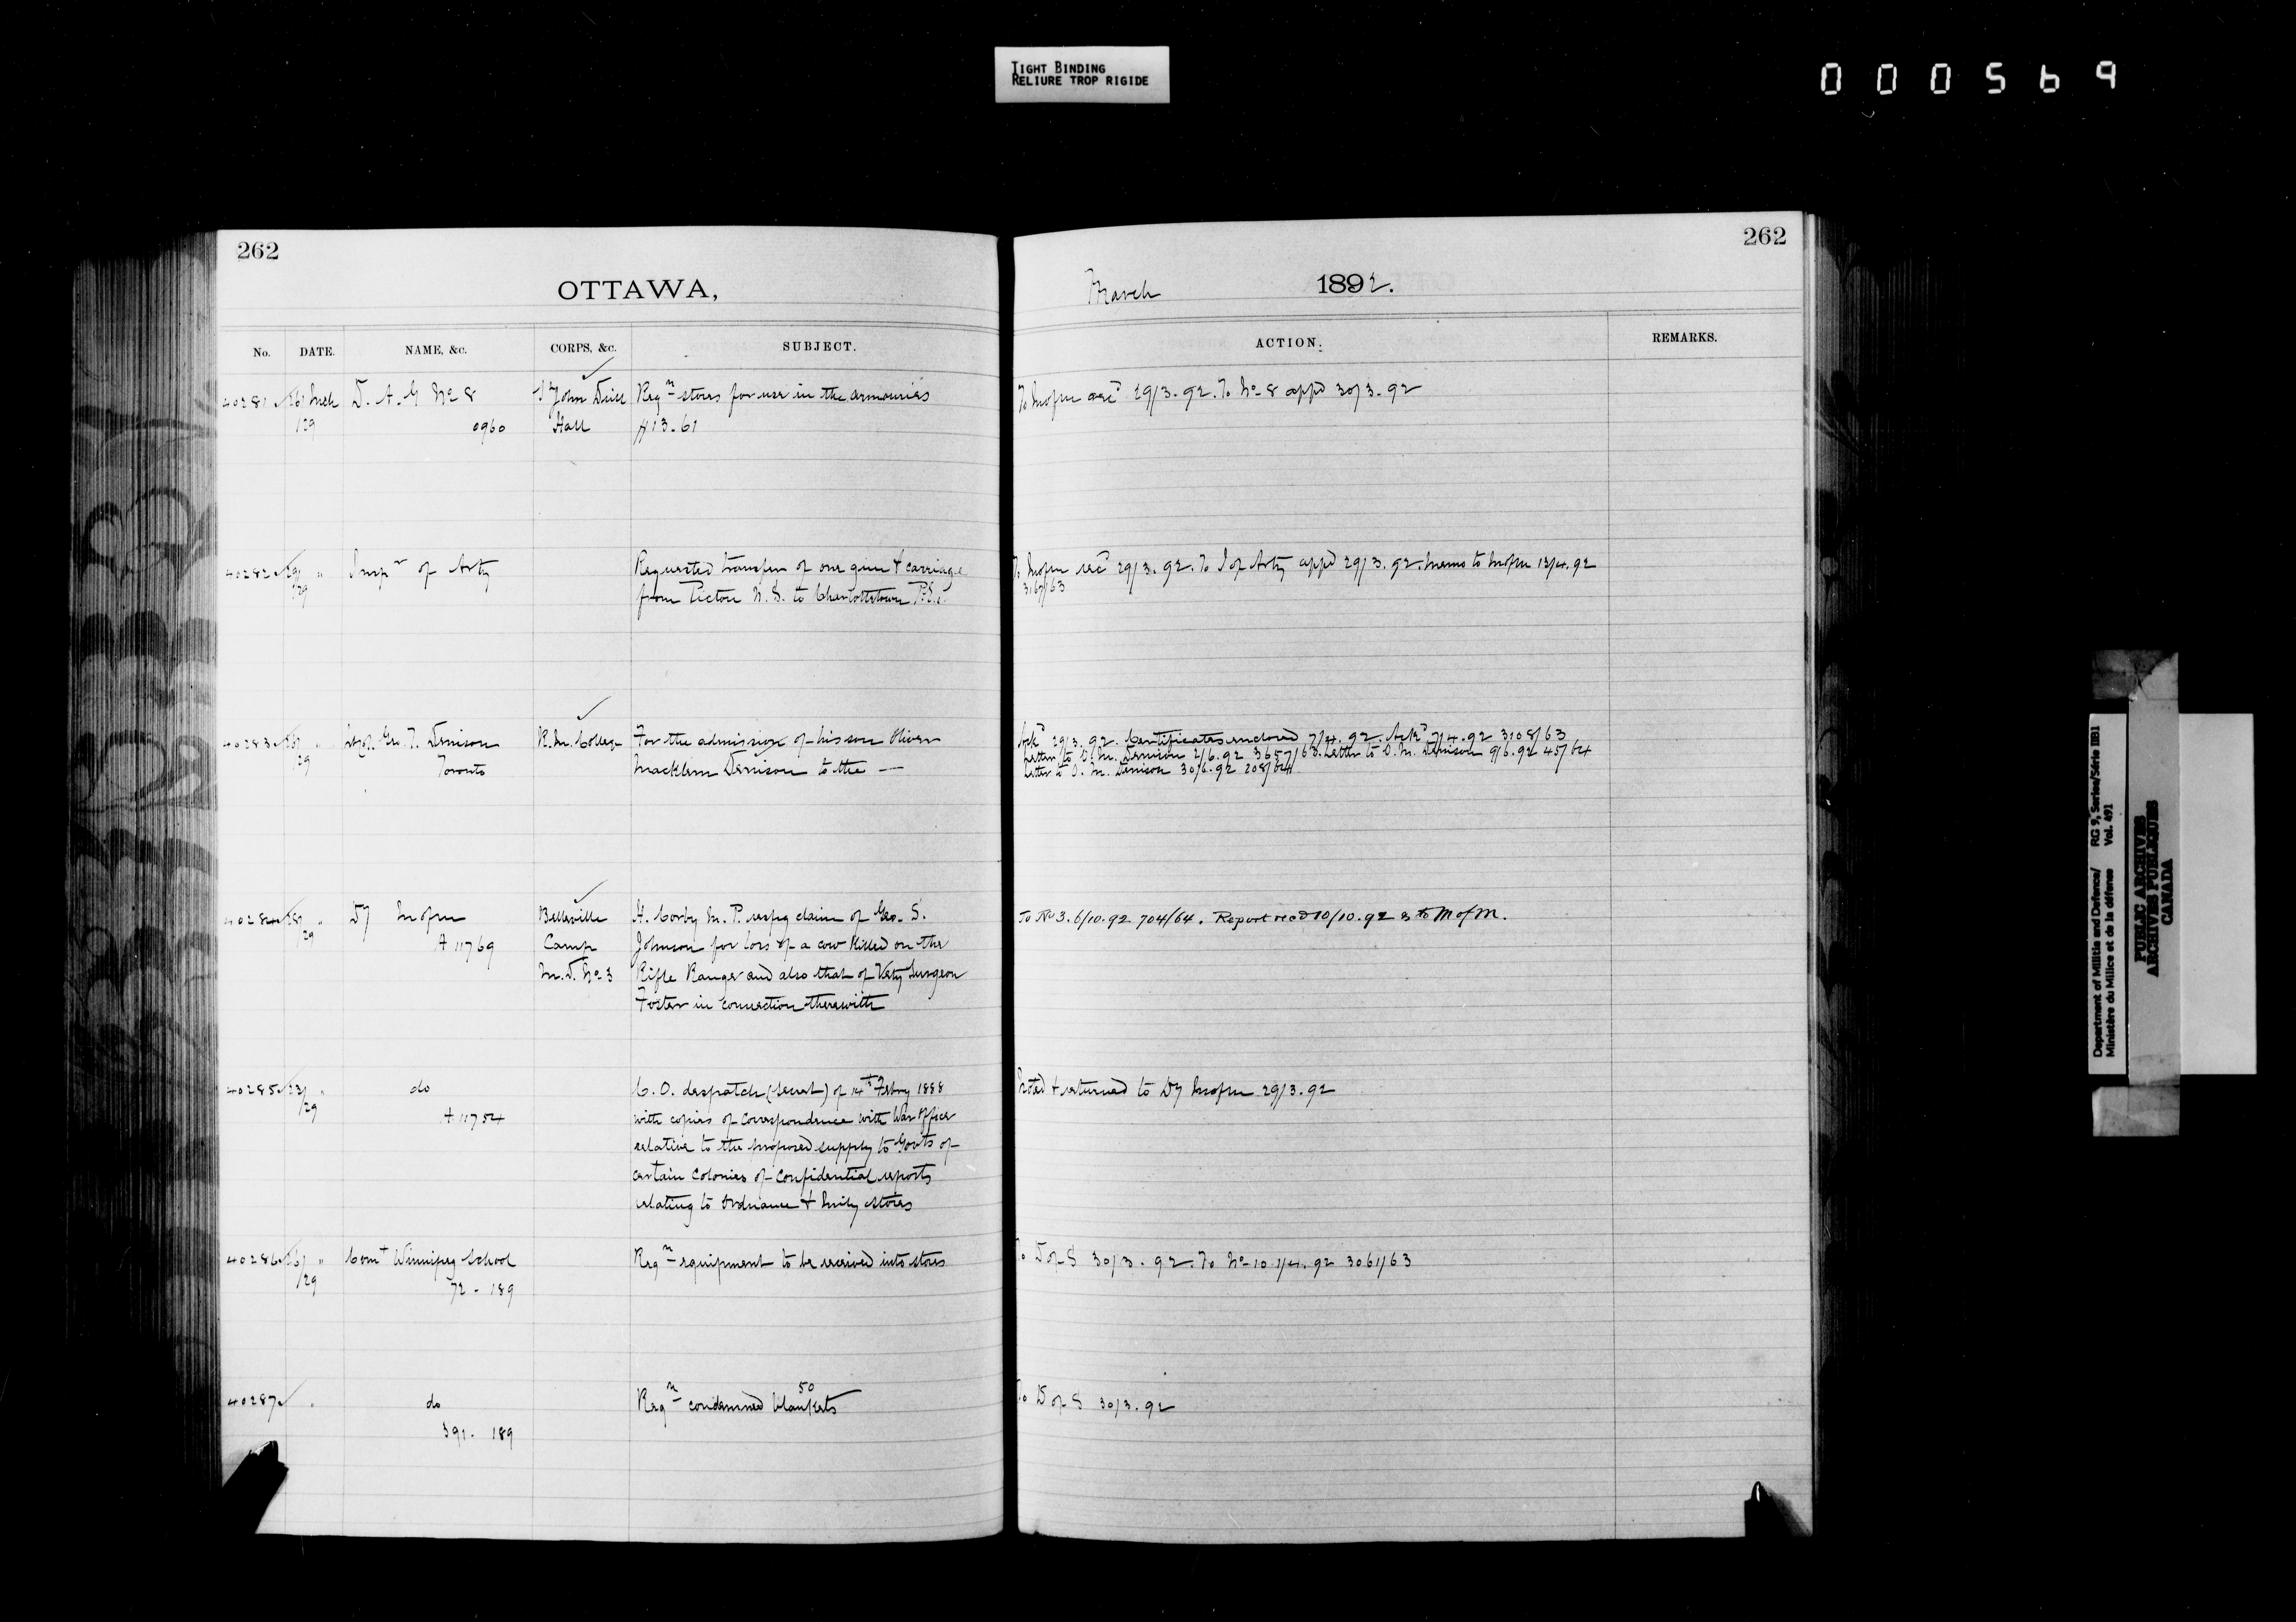 TIGHT BINDING
RELIURE TROP RIGIDE
000569
262
OTTAWA,
No. DATE. NAME, &c. CORPS, &c. SUBJECT.
40281 26/ Mch D. A. G No 8 St John Drill Reqn stores for use in the armouries
/29 0960 Hall #13.61
40282 29/ " Inspr of Arty Requested transfer of one gun + carriage
/29 from Pictou N. S. to Charlottetown P.E.I.
40283 " Geo. T. Denison R. M. College For the admission of his son Oliver
/29 Toronto Macklem Denison to the —
40284 28/ " Dy Belleville H. Corby M. P. respg claim of Geo. S.
/29 A 11769 Camp Johnson for loss of a cow killed on the
M. D. No 3 Rifle Ranges and also that of Vety Surgeon
Foster in connection therewith
40285 23/ " do C. O. despatch (secret) of 14th Febry 1888
/29 A 11754 with copies of correspondence with War Office
relative to the proposed supply to Govts of
certain Colonies of Confidential reports
relating to Ordnance + Mily stores
40286 26/ " Comt Winnipeg School Reqn equipment to be received into stores
/29 72 - 189
40287 " do Reqn condemned blankets 50
391 - 189
262
March 1892.
ACTION. REMARKS.
29/3.92. To No 8 appd 30/3.92
29/3.92. To I of Arty appd 29/3.92. Memo to 12/4.92
3167/63
Ackd 29/3.92. Certificates enclosed 7/4.92. Ackd 7/4.92 3108/63
Letter to O. M. Denison 2/6.92 3657/63. Letter to O. M. Denison 9/6.92 45/64
Letter to O. M. Denison 30/6.92 208/64
To No 3. 6/10.92 704/64. Report recd 10/10.92 & to M of M.
Noted + returned to Dy 29/3.92
To D of S 30/3.92. To No 10 1/4.92 3061/63
To D of S 30/3.92
Department of Militia and Defence/ RG 9, Series/Série IIB1
Ministère du Milice et de la défense Vol. 491
PUBLIC ARCHIVES
ARCHIVES PUBLIQUES
CANADA